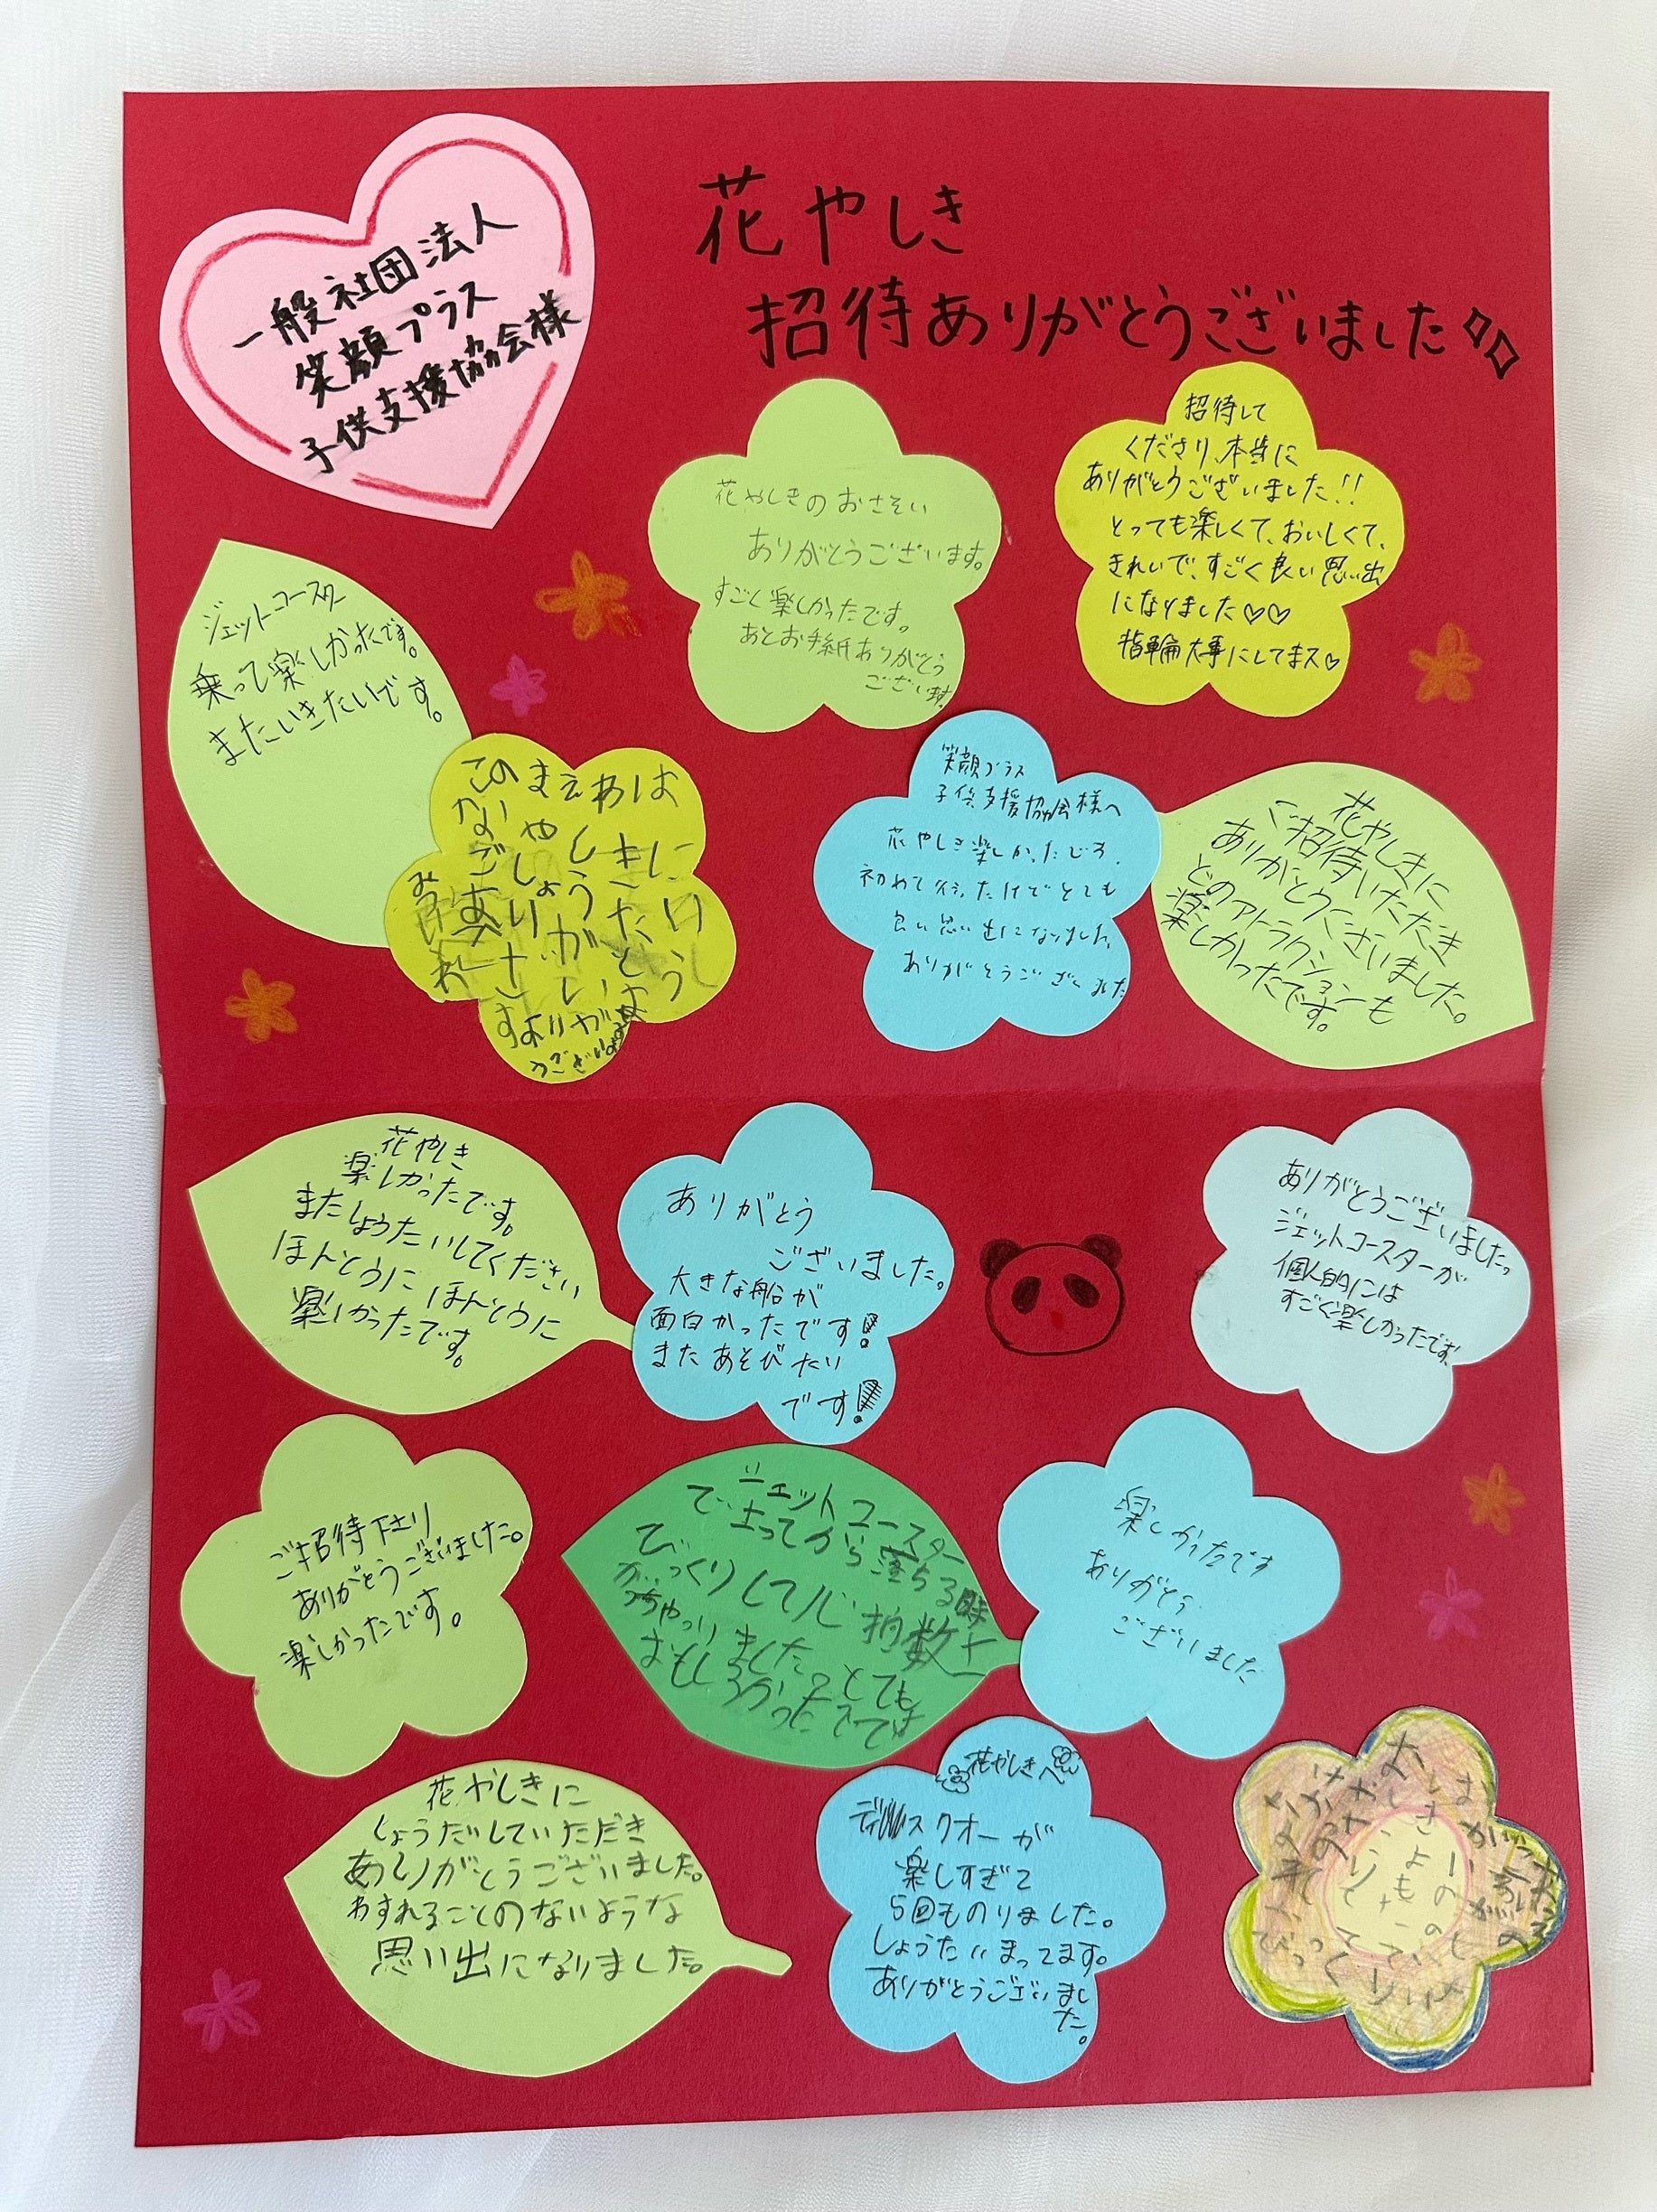 一般社団法人
笑顔プラス
子供支援協会様
花やしき
招待ありがとうございました
花やしきのおさそい
ありがとうございます。
すごく楽しかったです。
あとお手紙ありがとう
ございます。
招待して
くださり、本当に
ありがとうございました!!
とっても楽しくて、おいしくて、
きれいで、すごく良い思い出
になりました♡♡
指輪大事にしてます♡
ジェットコースター
乗って楽しかったです。
またいきたいです。
このまえわは
なやしきに
ごしょうたい
ありがとう
笑顔プラス
子供支援協会様へ
花やしき楽しかったです。
初めて行ったけどとても
良い思い出になりました。
ありがとうござ
花やしきに
ご招待いただき
ありがとうございました。
どのアトラクションも
楽しかったです。
花やしき
楽しかったです。
またしょうたいしてください
ほんとうにほんとうに
楽しかったです。
ありがとう
ございました。
大きな船が
面白かったです!
またあそびたい
です!
ありがとうございました。
ジェットコースターが
個人的には
すごく楽しかったです。
ご招待下さり
ありがとうございました。
楽しかったです。
ジェットコースター
で上ってから落ちる時
びっくりして心拍数上
がっちゃいました。とても
おもしろかったです
楽しかったです
ありがとう
ございました
花やしきに
しょうだいしていただき
ありがとうございました。
わすれることのないような
思い出になりました。
花やしきへ
ディスクオーが
楽しすぎて
5回ものりました。
しょうたいまってます。
ありがとうございまし
た。